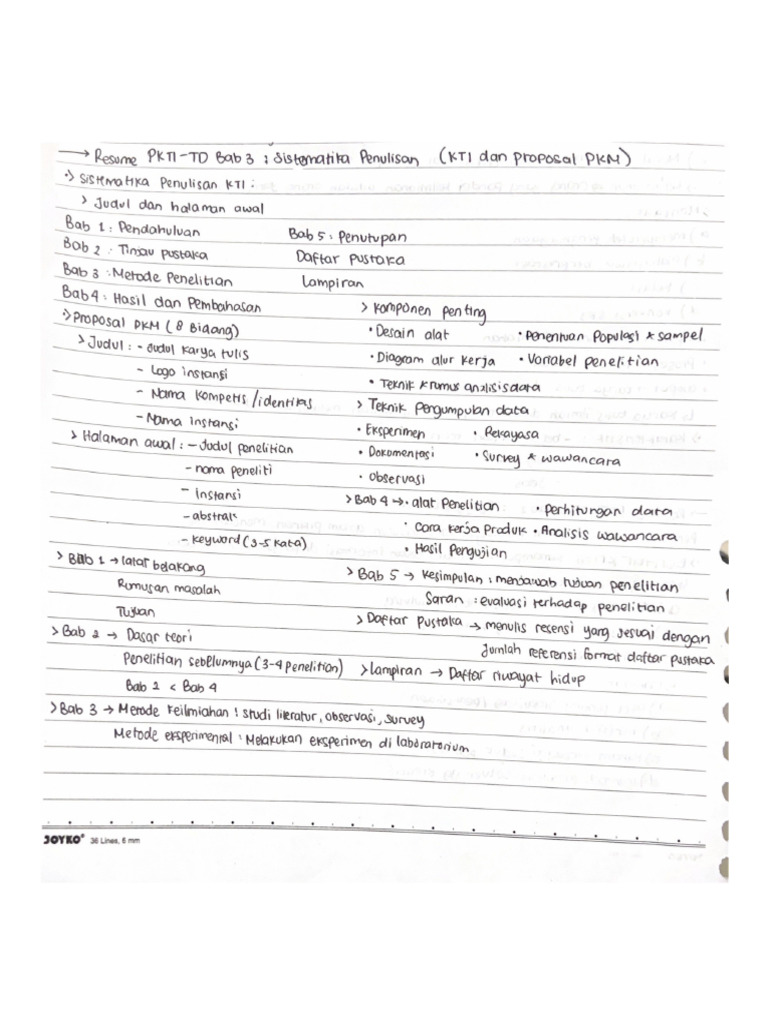 → Resume PKTI-TD Bab 3 : Sistematika Penulisan (KTI dan Proposal PKM)
•> Sistematika Penulisan KTI :
> Judul dan halaman awal
Bab 1 : Pendahuluan
Bab 2 : Tinjau pustaka
Bab 3 : Metode Penelitian
Bab 4 : Hasil dan Pembahasan
Bab 5 : Penutupan
Daftar pustaka
Lampiran
•> Proposal PKM ( 8 Bidang)
> Judul : - Judul karya tulis
- Logo instansi
- Nama kompetis /identitas
- Nama instansi
> Halaman awal : - Judul penelitian
- nama peneliti
- Instansi
- abstrak
- keyword (3-5 kata)
> Bab 1 → latar belakang
Rumusan masalah
Tujuan
> Bab 2 → Dasar teori
Penelitian sebelumnya (3-4 penelitian)
Bab 2 < Bab 4
> Bab 3 → Metode Keilmiahan : studi literatur, observasi, survey
Metode eksperimental : Melakukan eksperimen di laboratorium
> Komponen penting
• Desain alat • Penentuan Populasi * sampel
• Diagram alur kerja • Variabel penelitian
• Teknik * rumus analisis data
> Teknik Pengumpulan data
• Eksperimen • Rekayasa
• Dokumentasi • Survey * wawancara
• Observasi
> Bab 4 → • alat Penelitian • perhitungan data
• Cara kerja Produk • Analisis wawancara
• Hasil Pengujian
> Bab 5 → Kesimpulan : menjawab tujuan penelitian
Saran : evaluasi terhadap penelitian
> Daftar Pustaka → menulis resensi yang sesuai dengan
Jumlah referensi format daftar pustaka
> lampiran → Daftar riwayat hidup
JOYKO® 36 Lines, 6 mm